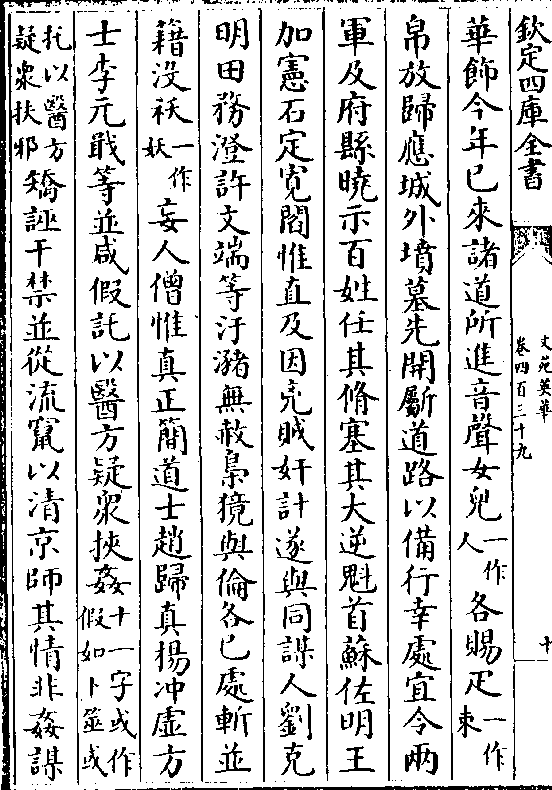 欽定四庫全書
文苑英華
卷四百三十九
十
華飾今年已來諸道所進音聲女兒一作人各賜疋一作束
帛放歸應城外墳墓先開斸道路以備行幸處宜令兩
軍及府縣曉示百姓任其脩塞其大逆魁首蘇佐明王
加憲石定寛閻惟直及因克賊奸計遂與同謀人劉克
明田務澄許文端等汙瀦無赦梟獍與倫各已處斬並
籍没祅一作妖妄人僧惟真正簡道士趙歸真楊冲虛方
士李元戢等並咸假託以醫方疑衆挾姦十一字或作假如卜筮或
托以醫方疑衆扶邪矯誣干禁並從流竄以清京師其情非姦謀